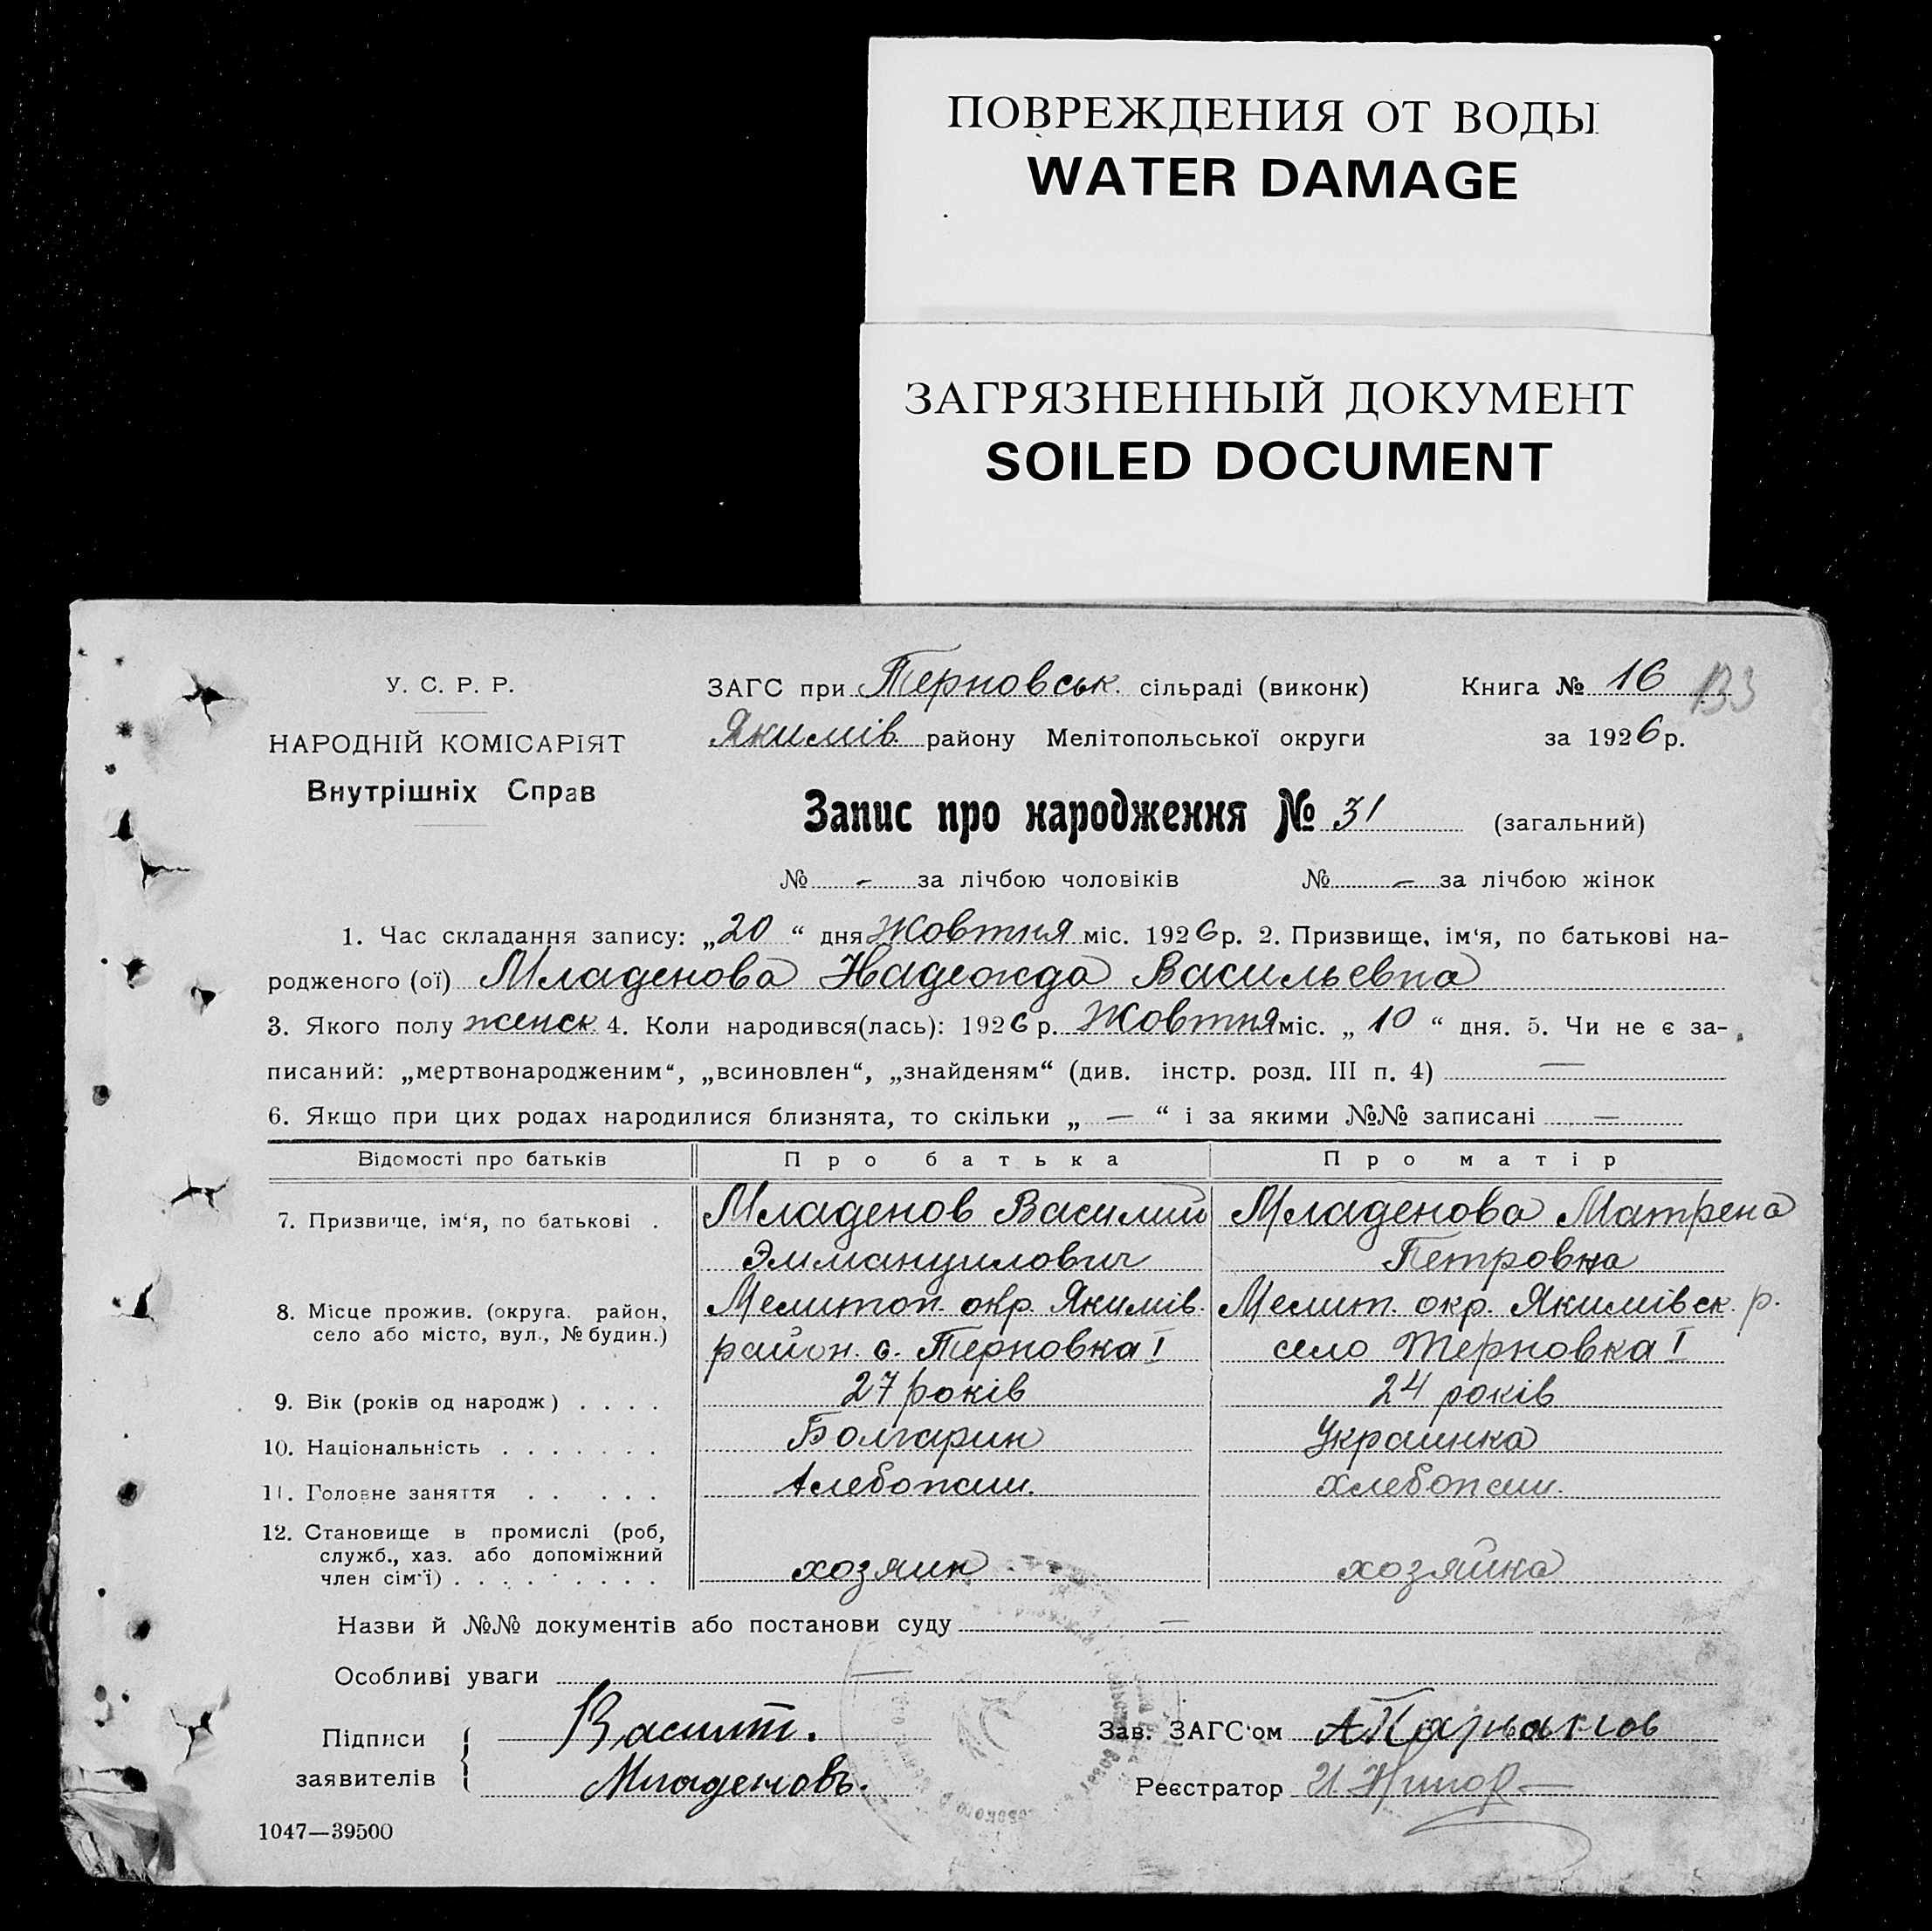 ПОВРЕЖДЕНИЯ ОТ ВОДЫ
WATER DAMAGE
ЗАГРЯЗНЕННЫЙ ДОКУМЕНТ
SOILED DOCUMENT
У. С. Р. Р.
НАРОДНІЙ КОМІСАРІЯТ
Внутрішніх Справ
ЗАГС при Терновськ. сільраді (виконк)
Якимів. району Мелітопольської округи
Книга № 16 133
за 1926 р.
Запис про народження № 31 (загальний)
№ – за лічбою чоловіків № – за лічбою жінок
1. Час складання запису: „20“ дня Жовтня міс. 1926 р. 2. Призвище, ім‘я, по батькові на-
родженого (ої) Младенова Надежда Васильевна
3. Якого полу женск. 4. Коли народився(лась): 1926 р. Жовтня міс. „10“ дня. 5. Чи не є за-
писаний: „мертвонародженим“, „всиновлен“, „знайденям“ (див. інстр. розд. III п. 4) —
6. Якщо при цих родах народилися близнята, то скільки „—“ і за якими №№ записані —
Відомості про батьків Про батька Про матір
7. Призвище, ім‘я, по батькові . Младенов Василий Младенова Матрена
Эммануилович Петровна
8. Місце прожив. (округа. район, Мелитоп. окр. Якимів. Мелит. окр. Якимівск. р.
село або місто, вул., № будин.) район. с. Терновка I село Терновка I
9. Вік (років од народж) . . . . 27 років 24 років
10. Національність . . . . . . . Болгарин Украинка
11. Головне заняття . . . . . Хлебопаш. Хлебопаш.
12. Становище в промислі (роб,
служб., хаз. або допоміжний
член сім‘ї) . . . . . . . . . хозяин хозяйка
Назви й №№ документів або постанови суду —
Особливі уваги —
Підписи
заявителів
Васили.
Младеновъ.
Зав. ЗАГС‘ом
Реєстратор И.
1047—39500